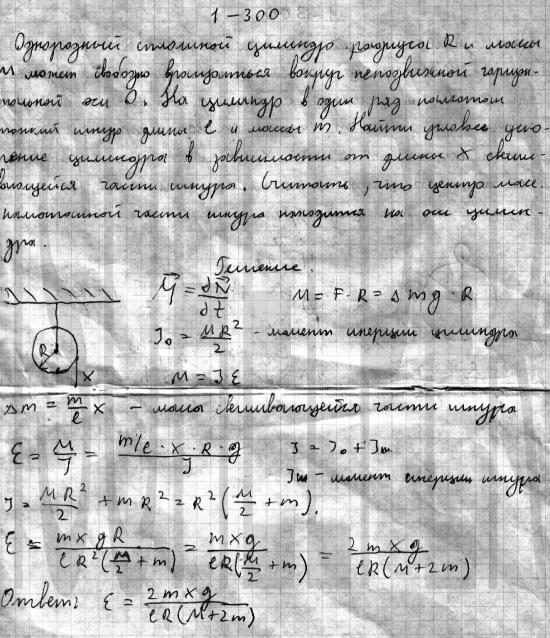 1-300
Однородный сплошной цилиндр радиуса R и массы
M может свободно вращаться вокруг неподвижной горизон-
тальной оси O. На цилиндр в один ряд намотан
тонкий шнур длины l и массы m. Найти угловое уско-
рение цилиндра в зависимости от длины x свеши-
вающейся части шнура. Считать, что центр масс
намотанной части шнура находится на оси цилин-
дра.
Решение.
M⃗ = dN⃗/dt M = F·R = Δmg·R
J₀ = MR²/2 - момент инерции цилиндра
R
x
M = Jε
Δm = m/l x - масса свешивающейся части шнура
ε = M/J = m/l·x·R·g/J J = J₀ + Jш
Jш - момент инерции шнура
J = MR²/2 + mR² = R²(M/2 + m).
ε = mxgR/lR²(M/2 + m) = mxg/lR(M/2 + m) = 2mxg/lR(M+2m)
Ответ: ε = 2mxg/lR(M+2m)